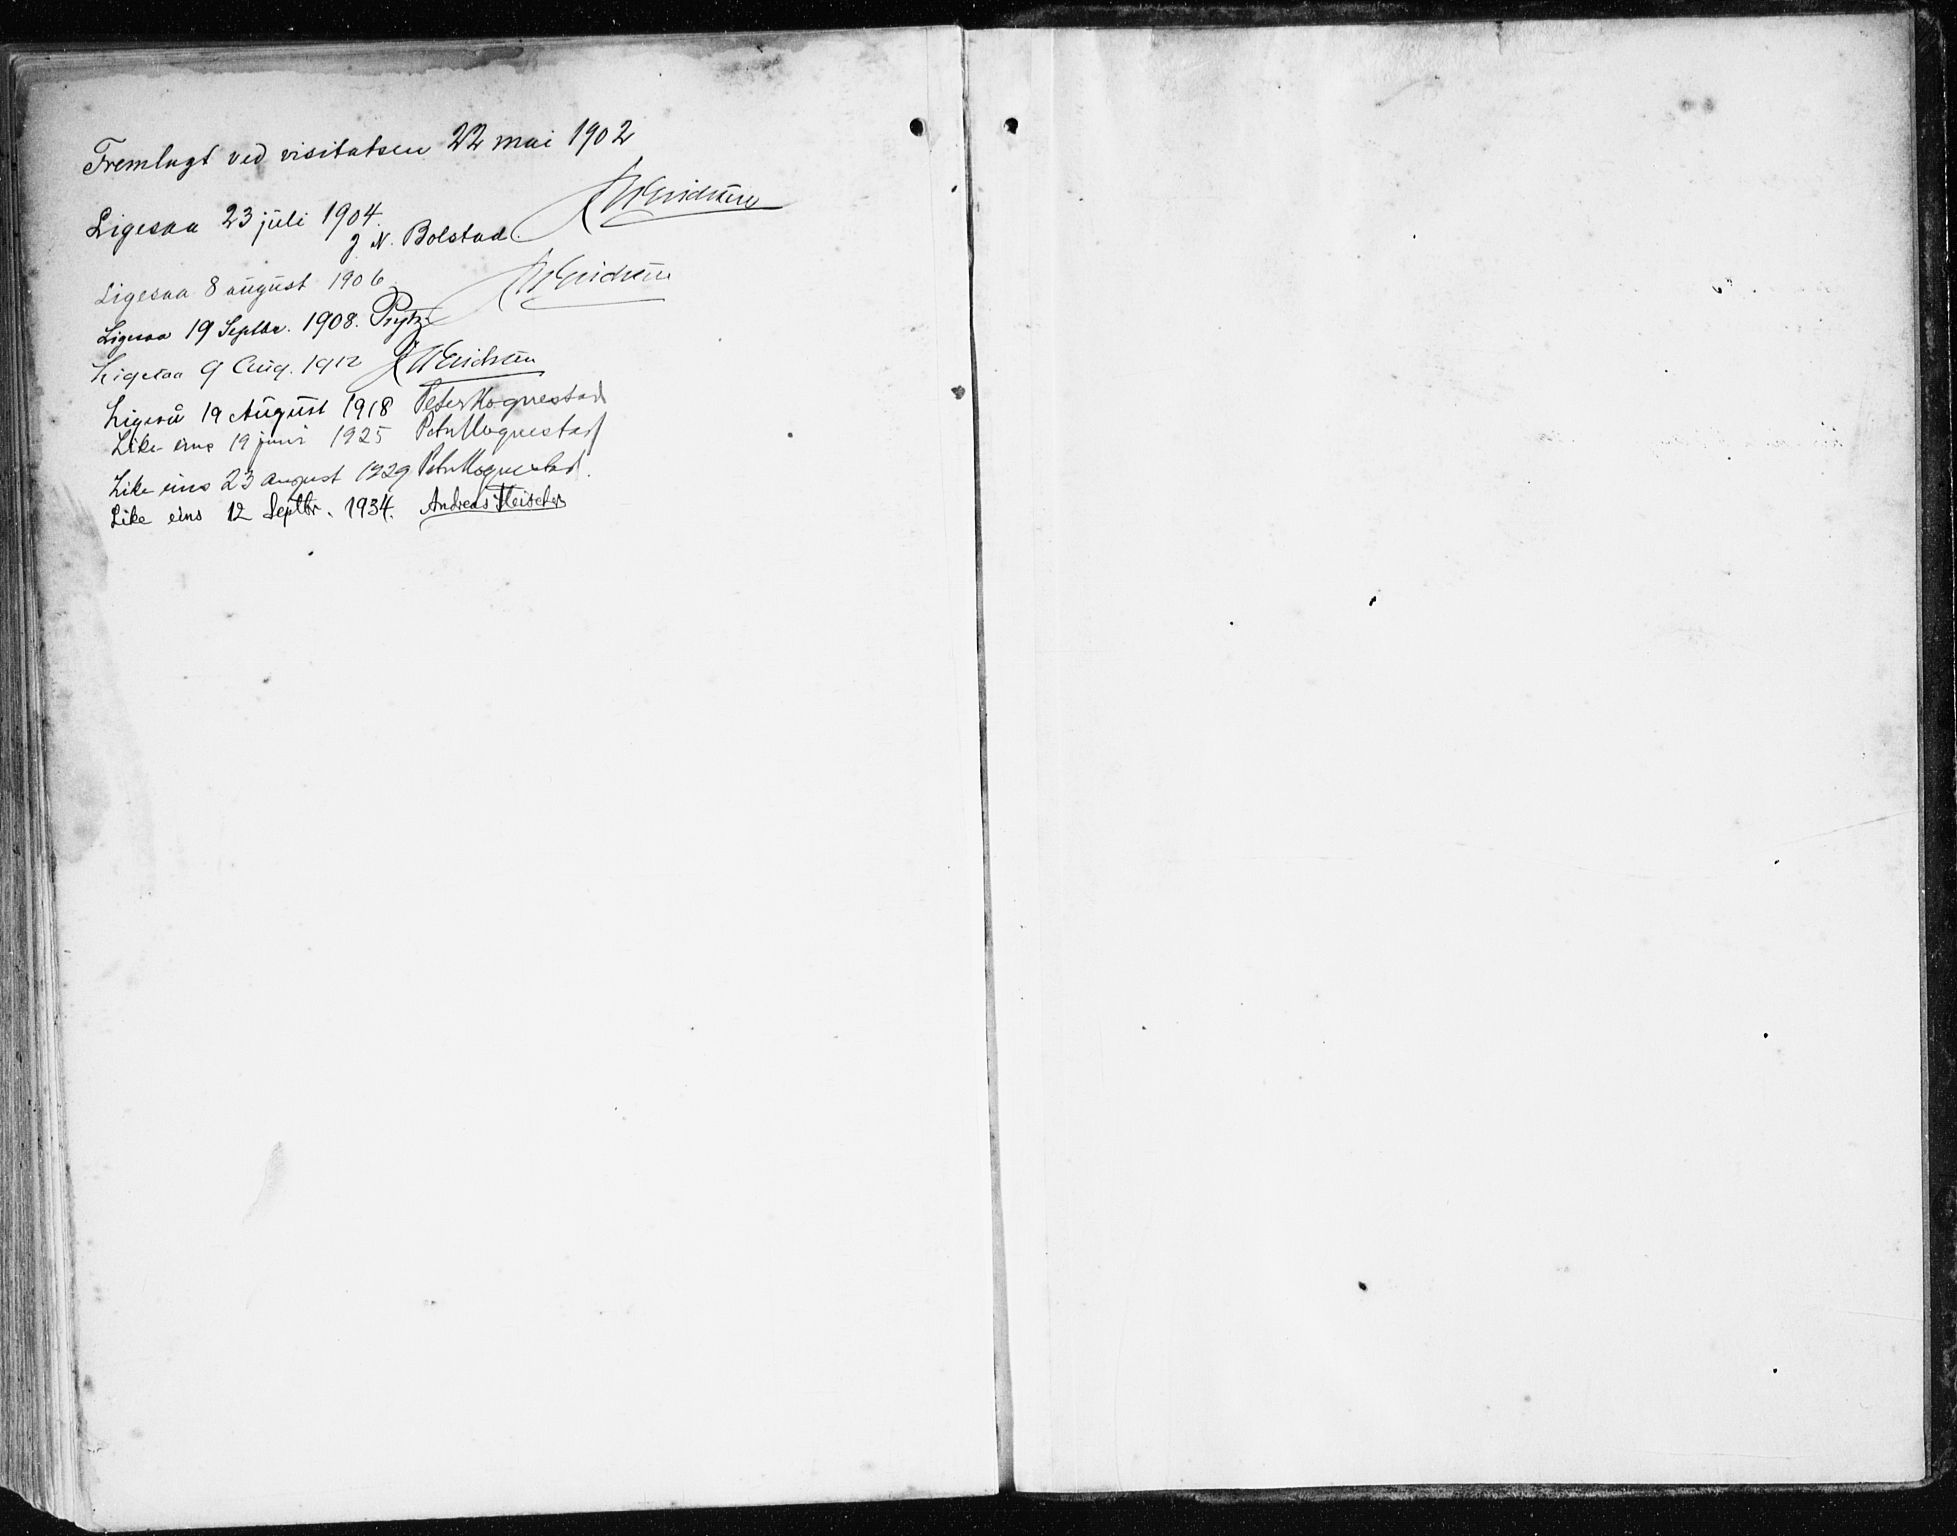 Fremlagt ved visitatsen 22 mai 1902
JWErichsen
Ligesaa 23 juli 1904.
J. N. Bolstad
Ligesaa 8 august 1906 JWErichsen
Ligesaa 19 Septbr. 1908. Prytz
Ligesaa 9 Aug. 1912 JWErichsen
Ligeså 19 August 1918 Peter Hognestad
Like eins 19 juni 1925 Peter Hognestad
Like eins 23 august 1929 Peter Hognestad.
Like eins 12 Septbr. 1934. Andreas Fleischer